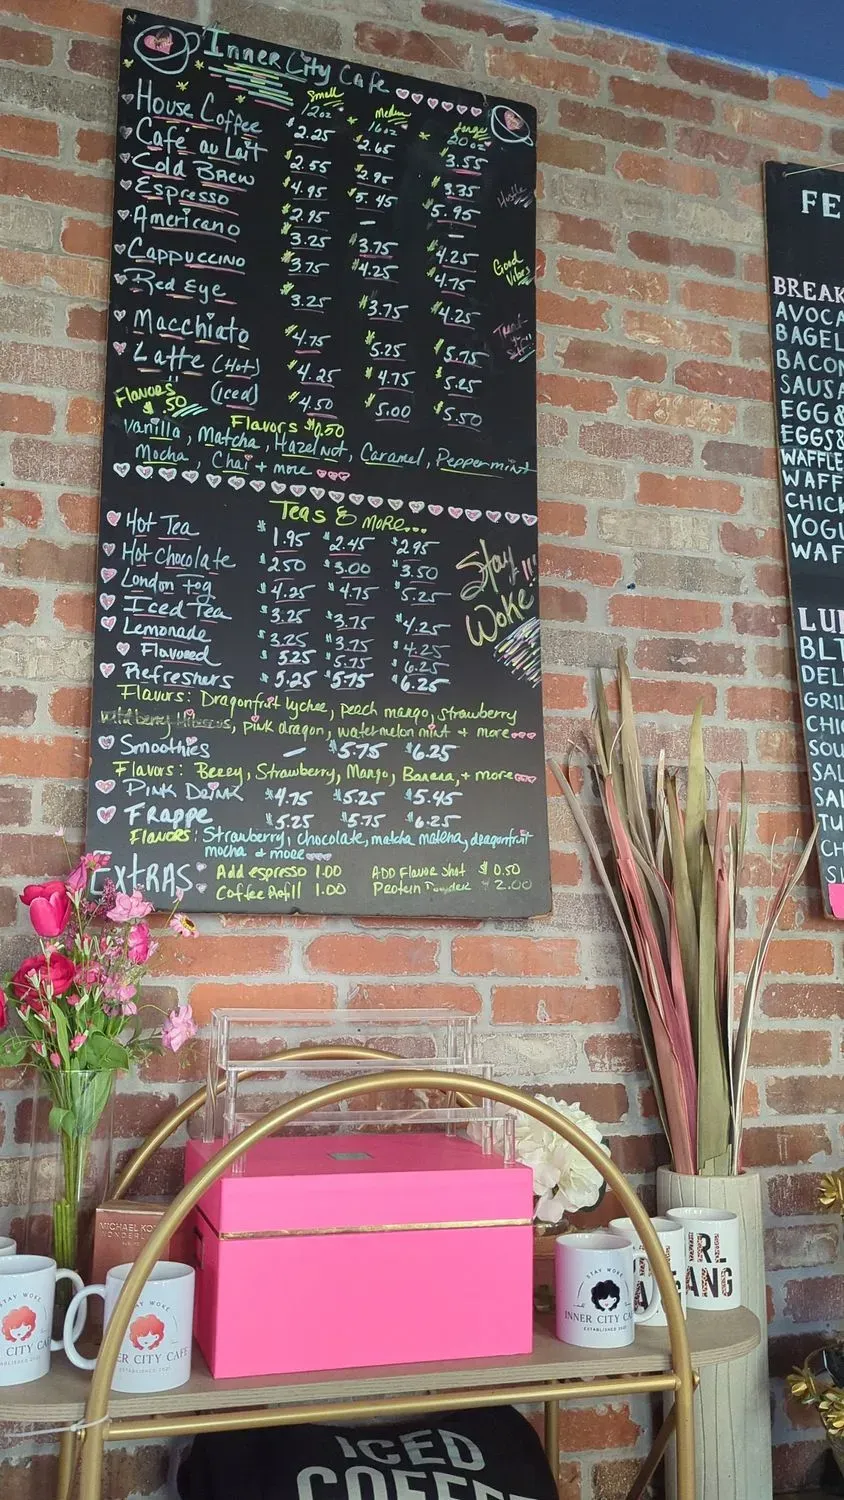 Inner City Cafe
Small Medium Large
12oz 16oz 20oz
House Coffee $2.25 $2.65 $3.55
Café au Lait $2.55 $2.95 $3.35
Cold Brew $4.95 $5.45 $5.95
Espresso $2.95 — —
Americano $3.25 $3.75 $4.25
Cappuccino $3.75 $4.25 $4.75
Red Eye $3.25 $3.75 $4.25
Macchiato $4.75 5.25 $5.75
Latte (Hot) $4.25 $4.75 $5.25
(iced) $4.50 $5.00 $5.50
Hustle
Good
Vibes
Flavors
$.50
Flavors $0.50
Vanilla, Matcha, Hazelnot, Caramel, Peppermint
Mocha, Chai + more
Teas & More...
Hot Tea $1.95 $2.45 $2.95
Hot Chocolate $2.50 $3.00 $3.50
London Fog $4.25 $4.75 $5.25
Iced Tea 3.25 3.75 $4.25
Lemonade $3.25 $3.75 $4.25
Flavored $5.25 $5.75 $6.25
Refreshers $5.25 $5.75 $6.25
Stay
Woke!!!
Flavors: Dragonfruit lychee, peach mango, strawberry
wildberry hibiscus, pink dragon, watermelon mint + more
Smoothies — $5.75 $6.25
Flavors: Berry, Strawberry, Mango, Banana, + more
Pink Drink $4.75 $5.25 $5.45
Frappe $5.25 $5.75 $6.25
Flavors: Strawberry, chocolate, matcha matcha, dragonfruit
mocha + more
Extras
Add espresso 1.00 ADD Flavor shot $0.50
Coffee Refill 1.00 Protein Powder $2.00
FE
BREAK
AVOCA
BAGEL
BACON
SAUSA
EGG &
EGGS&
WAFFLE
WAFF
CHICK
YOGU
WAF
LU
BLT
DEL
GRIL
CHIC
SOU
SAL
SAL
TU
CH
S
MICHAEL KO
WONDERL
STAY WOKE
CITY CA
ESTABLISHED
WOKE
ER CITY CAFE
ESTABLISHED 2021
STAY WOKE
INNER CITY C
ESTABLISHED 2021
IRL
ANG
ICED
COFFEE